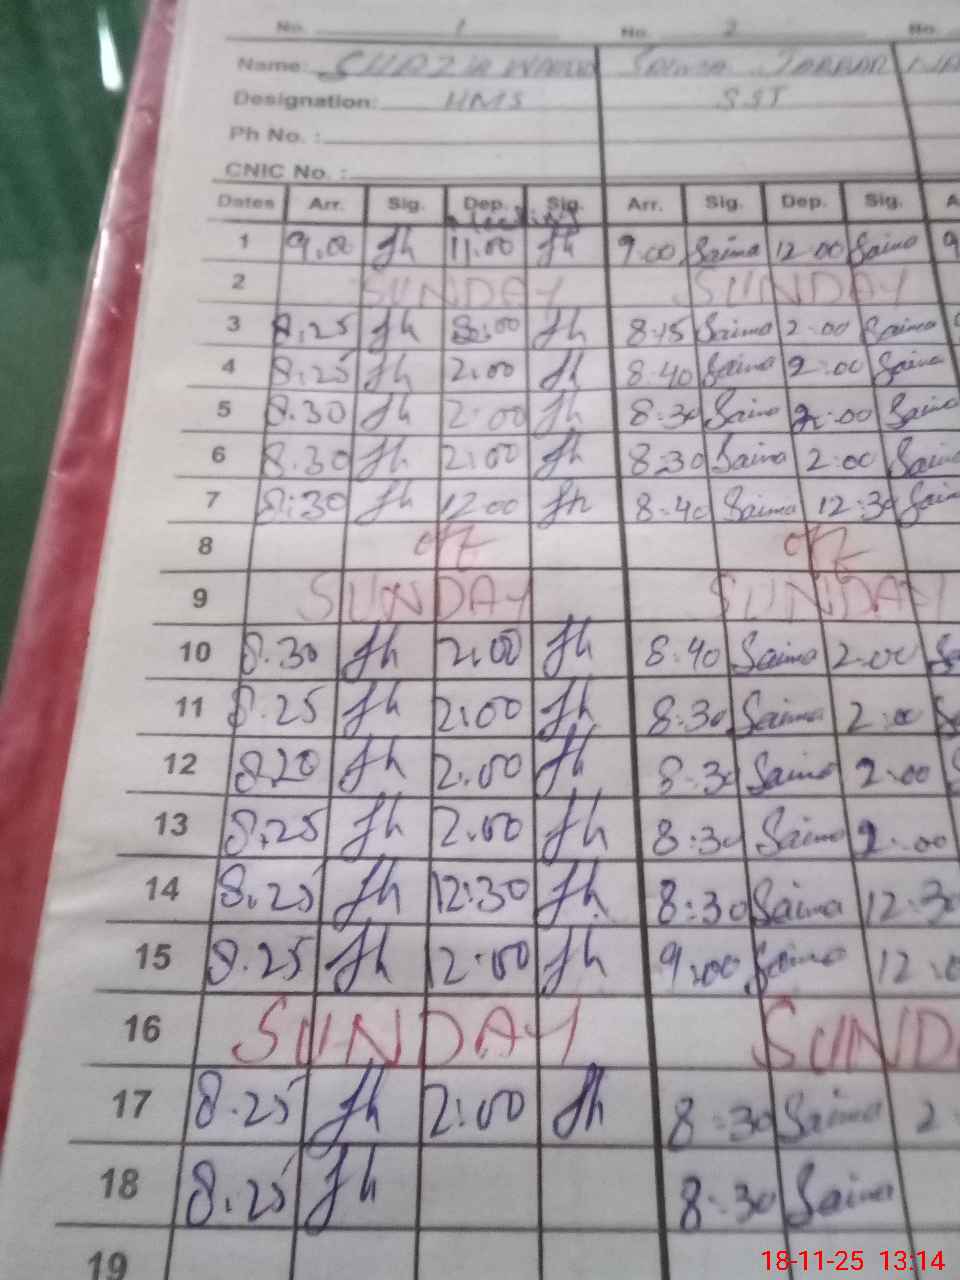 No. 1 No. 2 No.
Name: SHAZIA Name: Saima JABBAR
Designation: HMS SST
Ph No. :
CNIC No. :
Dates Arr. Sig. Dep. Sig. Arr. Sig. Dep. Sig. A
1 9.00 fh 11.00 fh 9.00 Saima 12.00 Saima 9
2 SUNDAY SUNDAY
3 8.25 fh fh 8:15 Saima 2:00 Saima
4 8.25 fh 2.00 fh 8:40 Saima 2:00 Saima
5 8.30 fh 2:00 fh 8:30 Saima 2:00 Saima
6 8.30 fh 2:00 fh 8:30 Saima 2:00 Saima
7 8:30 fh 12.00 fh 8:40 Saima 12:30 Saim
8 off off
9 SUNDAY SUNDAY
10 8.30 fh 2:00 fh 8:40 Saima 2:00 Sa
11 8.25 fh 2:00 fh 8:30 Saima 2:00 Sa
12 8.20 fh 2:00 fh 8:30 Saima 2:00 S
13 8.25 fh 2.00 fh 8:30 Saima 2:00
14 8.25 fh 12:30 fh 8:30 Saima 12:30
15 8.25 fh 12:00 fh 9:00 Saima 12:0
16 SUNDAY SUNDA
17 8.25 fh 2:00 fh 8:30 Saima 2
18 8.25 fh 8:30 Saima
19
18-11-25 13:14